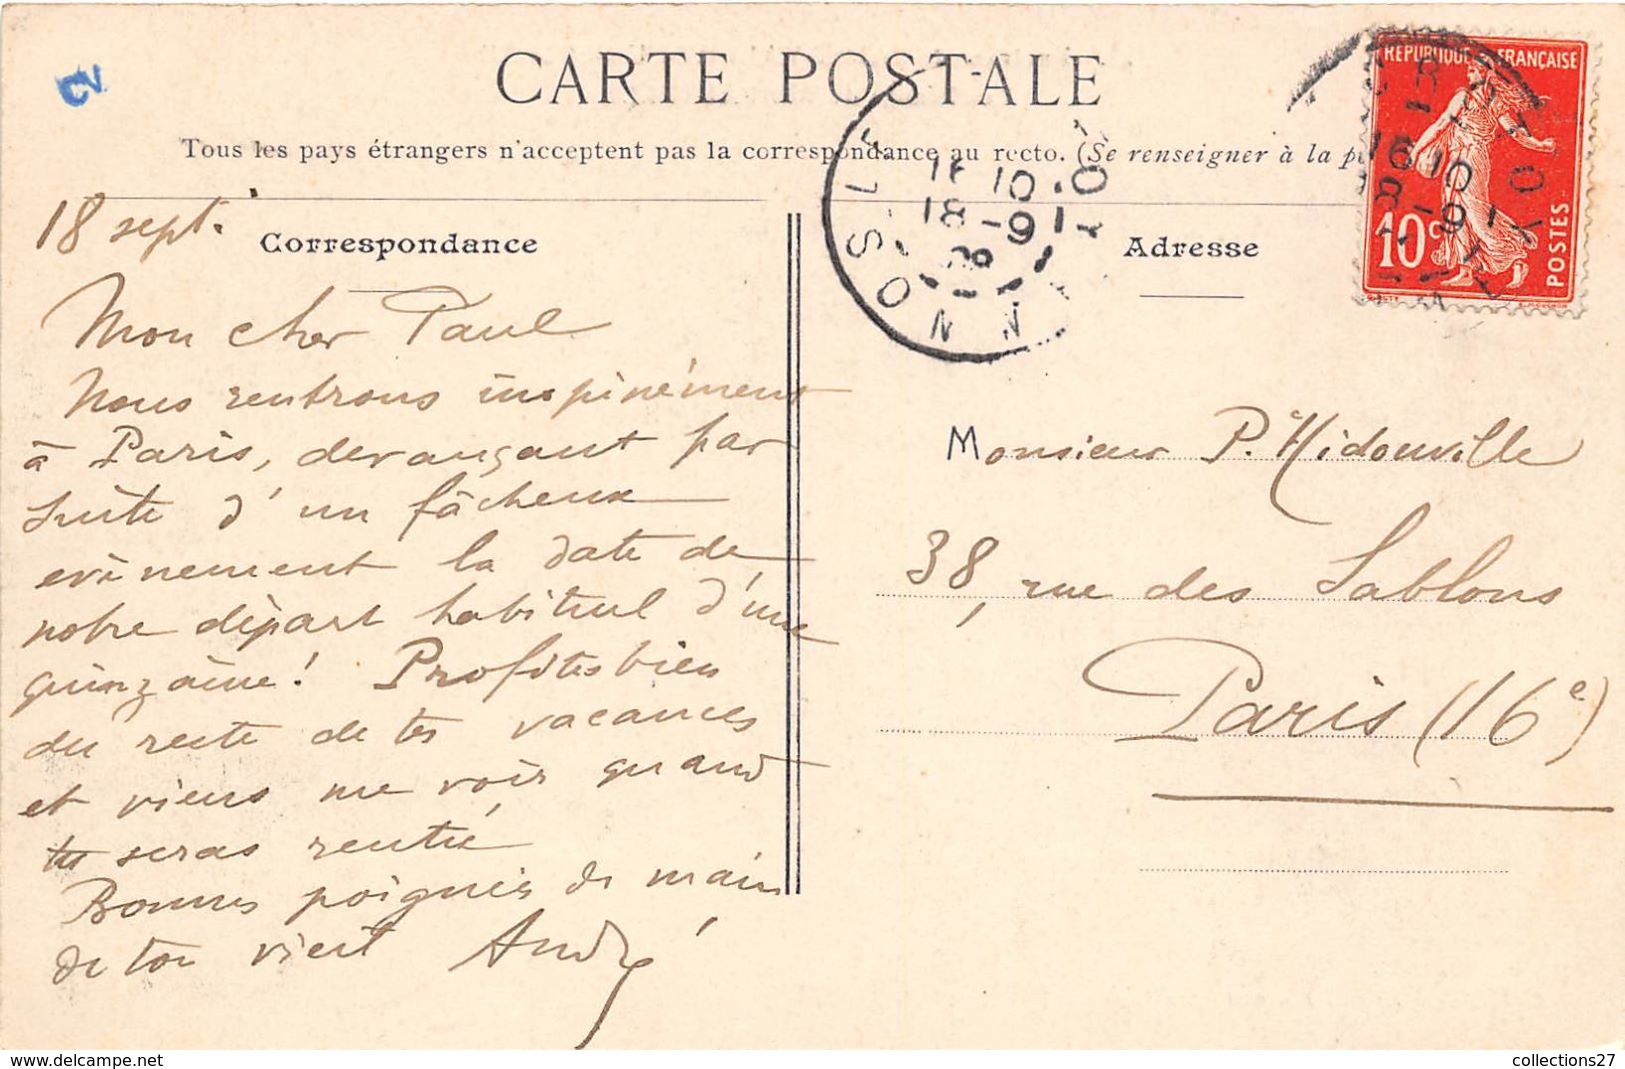 CARTE POSTALE
Tous les pays étrangers n'acceptent pas la correspondance au recto. (Se renseigner à la p
RÉPUBLIQUE FRANÇAISE
10c
POSTES
16 10
18-9
18 sept.
Correspondance
Mon cher Paul
Nous rentrons inopinément
à Paris, devançant par
suite d'un fâcheux
evènement la date de
notre départ habituel d'une
quinzaine! Profites bien
du reste de tes vacances
et viens me voir quand
tu seras rentré
Bonnes poignées de main
de ton vieil André
Adresse
Monsieur P. Hidouville
38, rue des Sablons
Paris (16e)
collections27